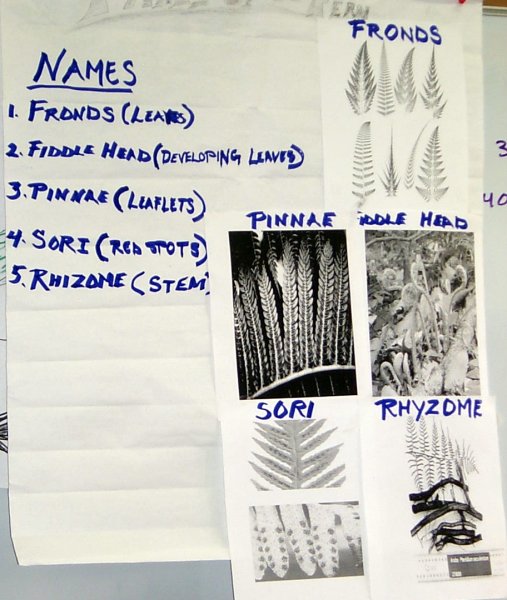 NAMES
1. FRONDS (LEAVES)
2. FIDDLE HEAD (DEVELOPING LEAVES)
3. PINNAE (LEAFLETS)
4. SORI (RED SPOTS)
5. RHIZOME (STEM)
FRONDS
PINNAE
IDDLE HEAD
SORI
RHYZOME
3
40